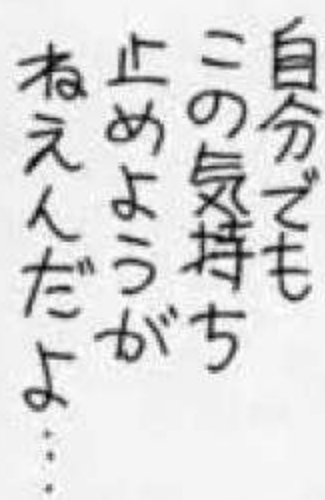 自分でも
この気持ち
止めようが
ねえんだよ…